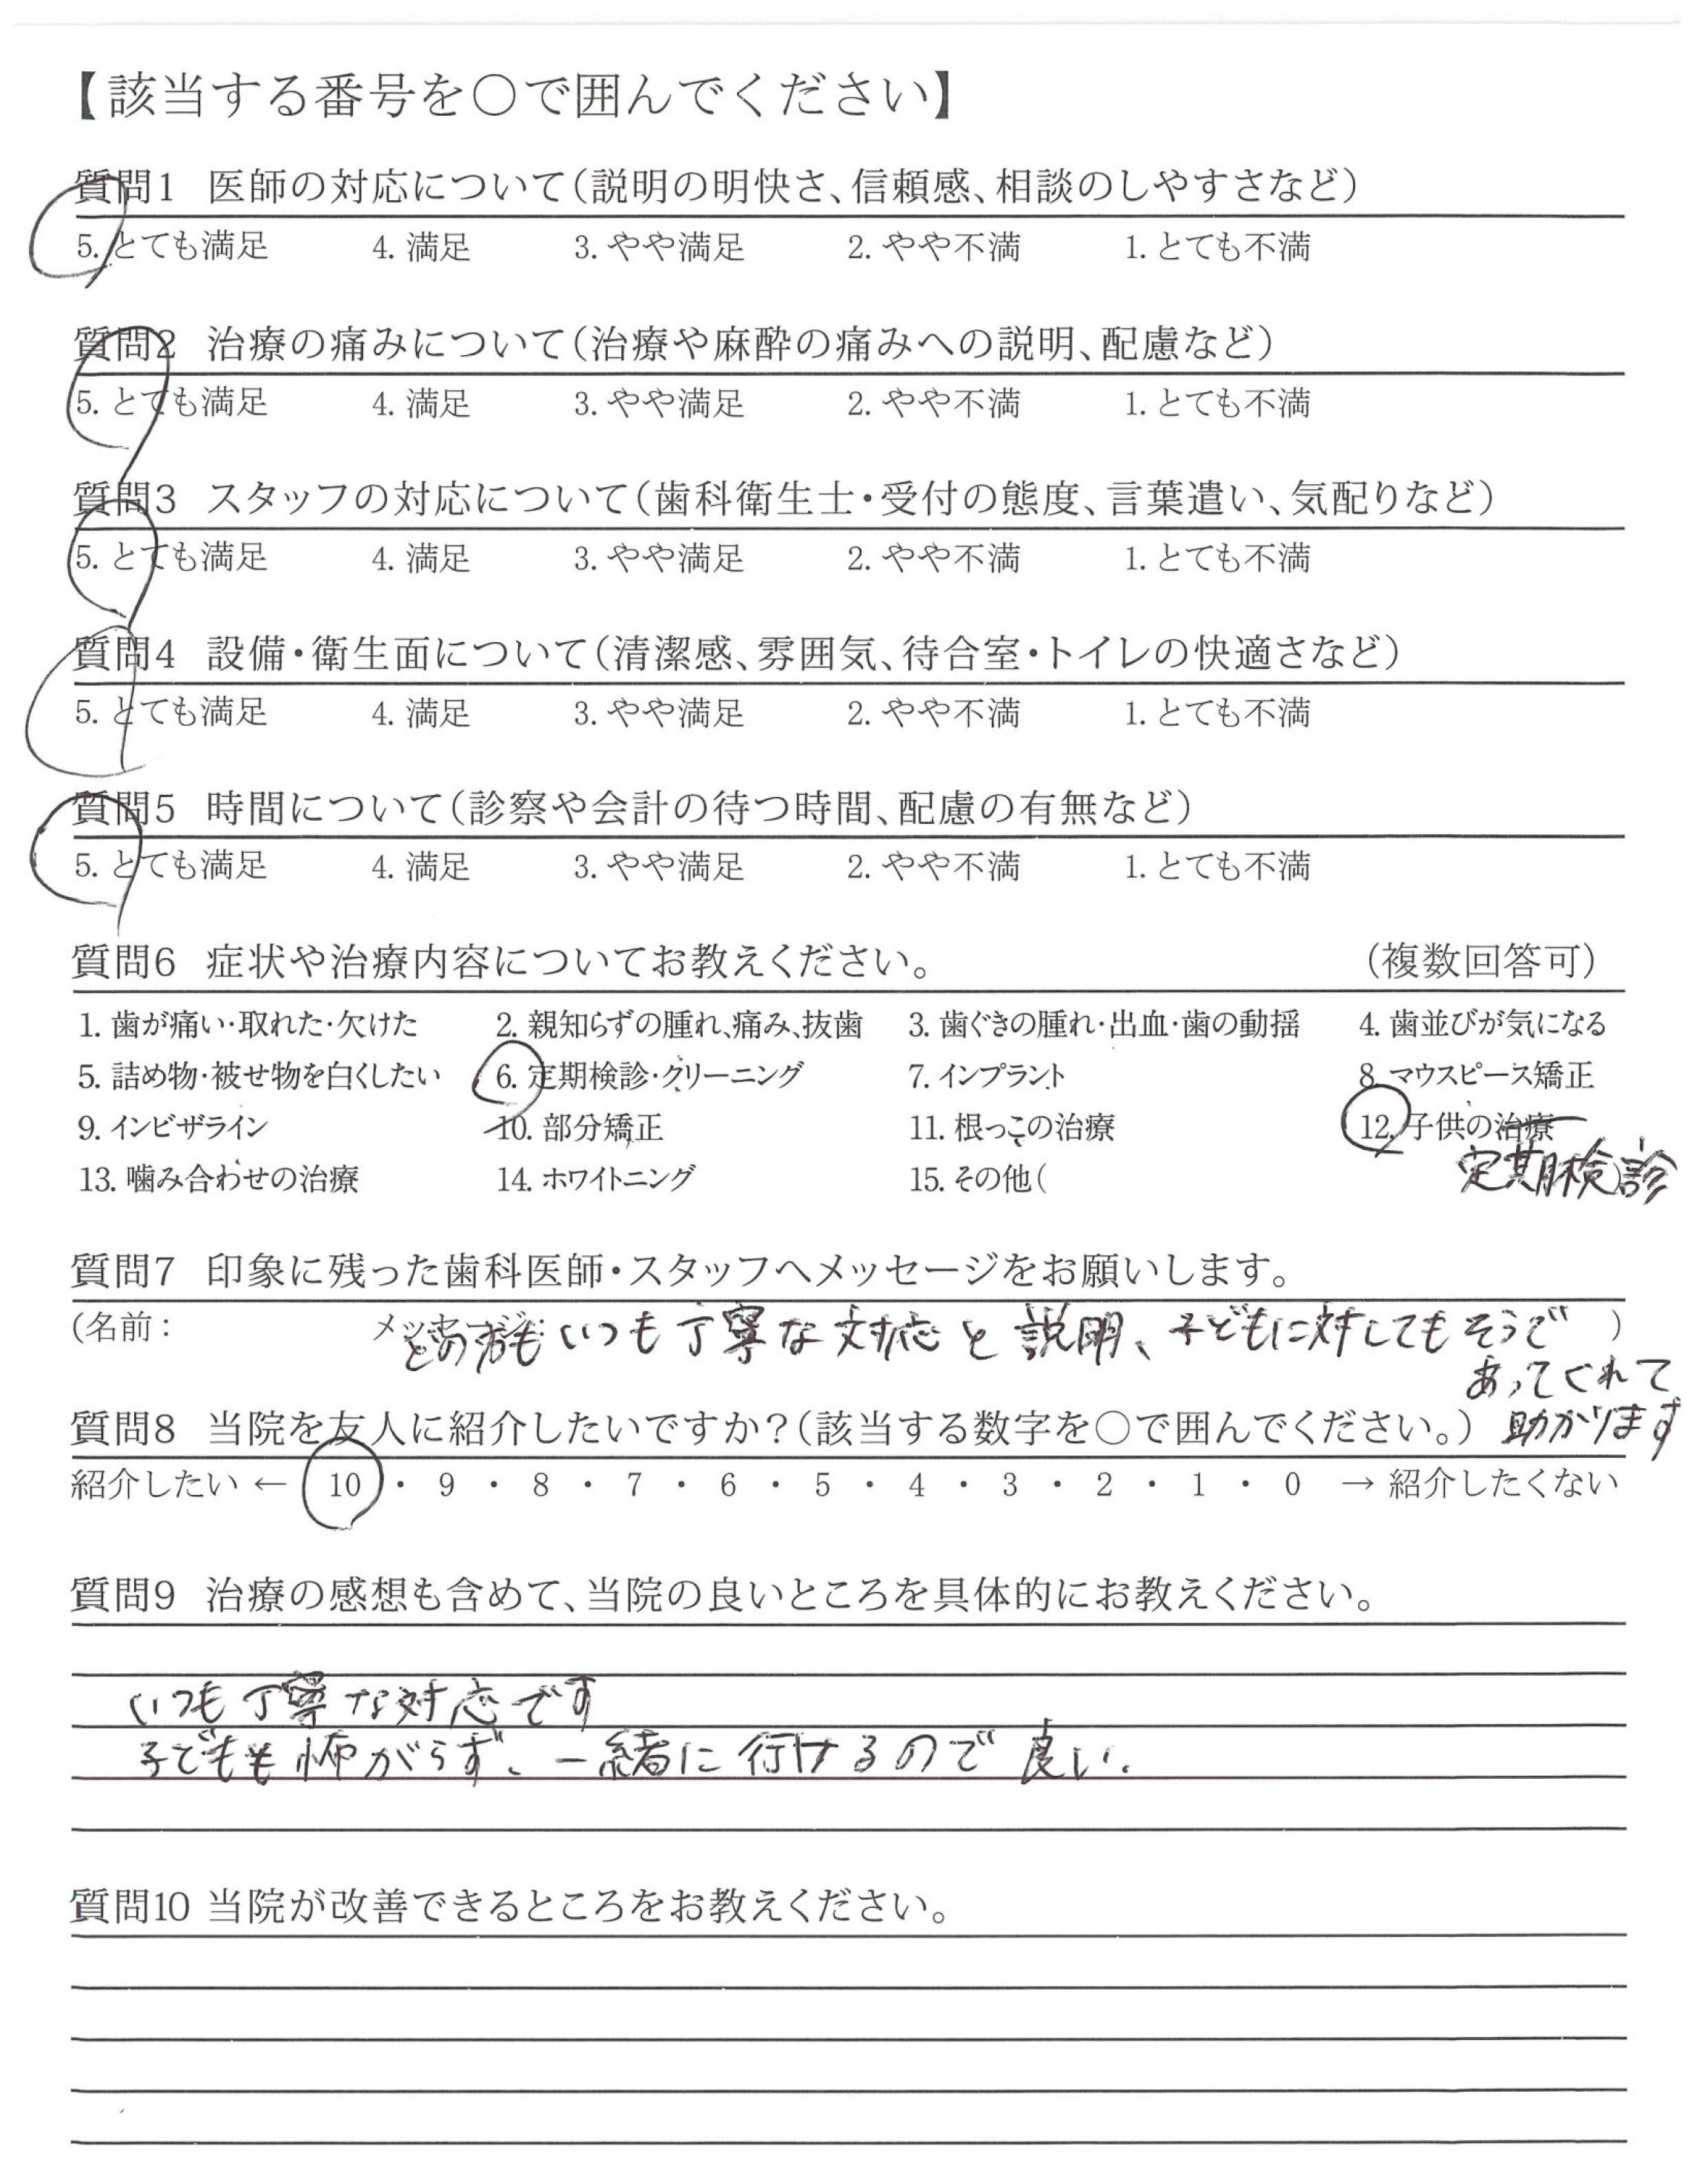 【該当する番号を○で囲んでください】
質問1 医師の対応について(説明の明快さ、信頼感、相談のしやすさなど)
5. とても満足 4. 満足 3. やや満足 2. やや不満 1. とても不満
質問2 治療の痛みについて(治療や麻酔の痛みへの説明、配慮など)
5. とても満足 4. 満足 3. やや満足 2. やや不満 1. とても不満
質問3 スタッフの対応について(歯科衛生士・受付の態度、言葉遣い、気配りなど)
5. とても満足 4. 満足 3. やや満足 2. やや不満 1. とても不満
質問4 設備・衛生面について(清潔感、雰囲気、待合室・トイレの快適さなど)
5. とても満足 4. 満足 3. やや満足 2. やや不満 1. とても不満
質問5 時間について(診察や会計の待つ時間、配慮の有無など)
5. とても満足 4. 満足 3. やや満足 2. やや不満 1. とても不満
質問6 症状や治療内容についてお教えください。 (複数回答可)
1. 歯が痛い・取れた・欠けた 2. 親知らずの腫れ、痛み、抜歯 3. 歯ぐきの腫れ・出血・歯の動揺 4. 歯並びが気になる
5. 詰め物・被せ物を白くしたい 6. 定期検診・クリーニング 7. インプラント 8. マウスピース矯正
9. インビザライン 10. 部分矯正 11. 根っこの治療 12. 子供の治療
定期検診
13. 噛み合わせの治療 14. ホワイトニング 15. その他( )
質問7 印象に残った歯科医師・スタッフへメッセージをお願いします。
(名前: メッセージ: どの方もいつも丁寧な対応と説明、子どもに対してもそうで )
あってくれて
助かります
質問8 当院を友人に紹介したいですか?(該当する数字を○で囲んでください。)
紹介したい ← 10 ・ 9 ・ 8 ・ 7 ・ 6 ・ 5 ・ 4 ・ 3 ・ 2 ・ 1 ・ 0 → 紹介したくない
質問9 治療の感想も含めて、当院の良いところを具体的にお教えください。
いつも丁寧な対応です
子どもも怖がらず、一緒に行けるので良い.
質問10 当院が改善できるところをお教えください。